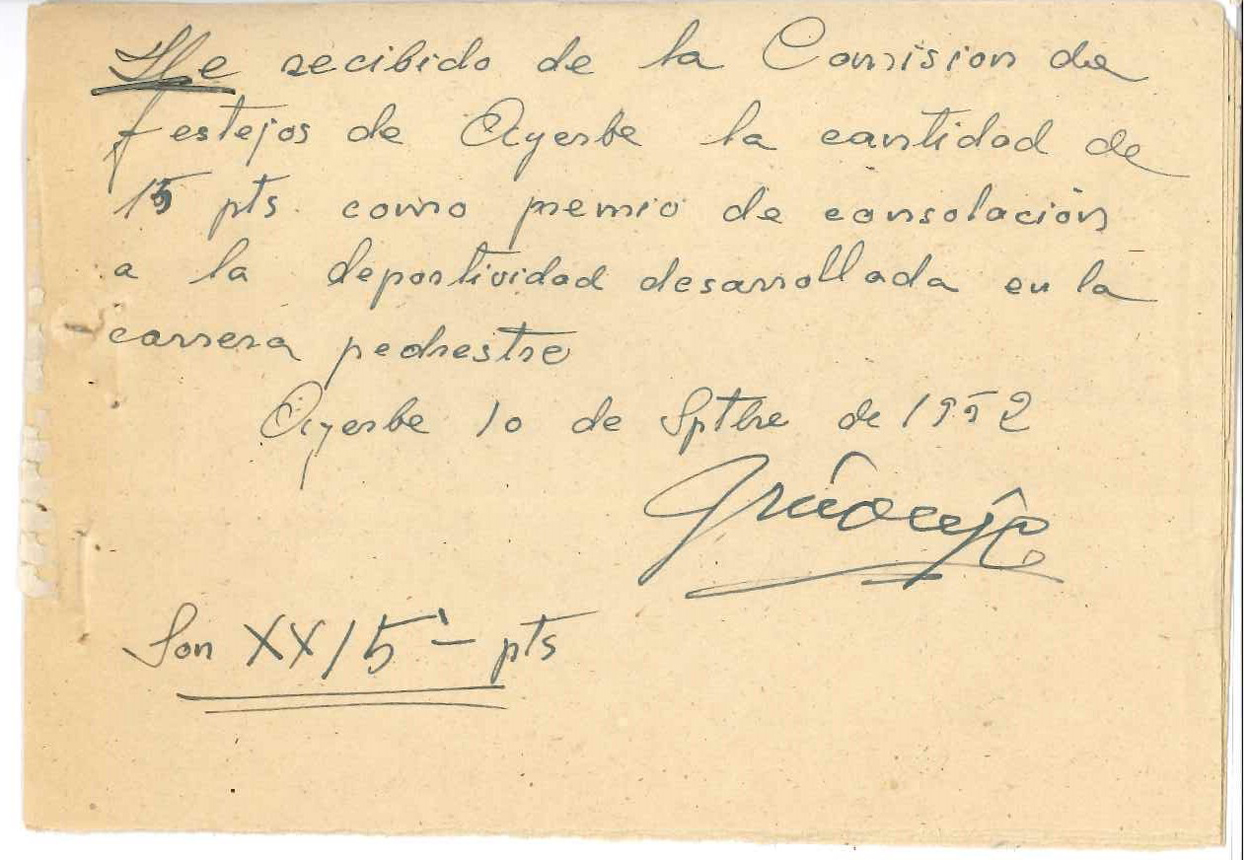 He recibido de la Comision de
festejos de Ayerbe la cantidad de
15 pts. como premio de consolación
a la deportividad desarrollada en la
carrera pedrestre
Ayerbe 10 de Sptbre de 1952
Son XX15'- pts